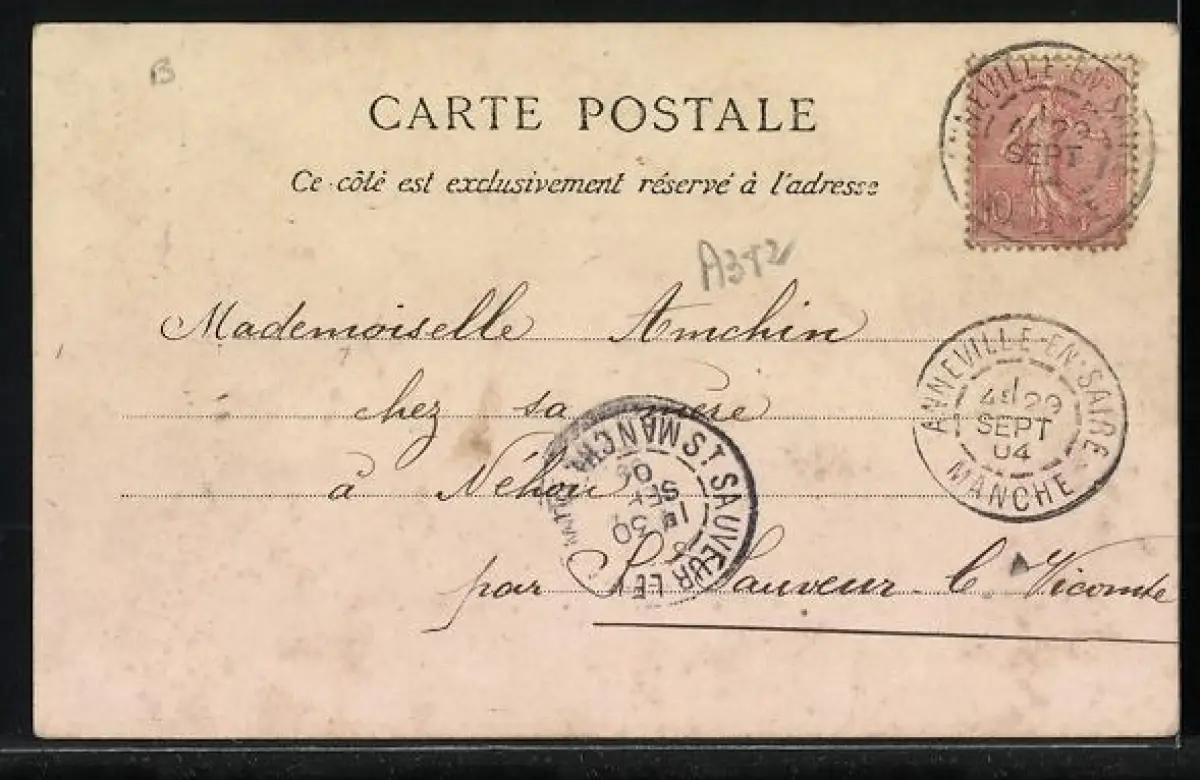 B
CARTE POSTALE
Ce côté est exclusivement réservé à l'adresse
ANNEVILLE-EN-SAIRE
29
SEPT
10
A372
Mademoiselle Amchin
chez sa mère
à Néhou
par St Sauveur-le Vicomte
ANNEVILLE-EN-SAIRE
4E 29
SEPT
04
MANCHE
ST SAUVEUR LE
MANCHE
30